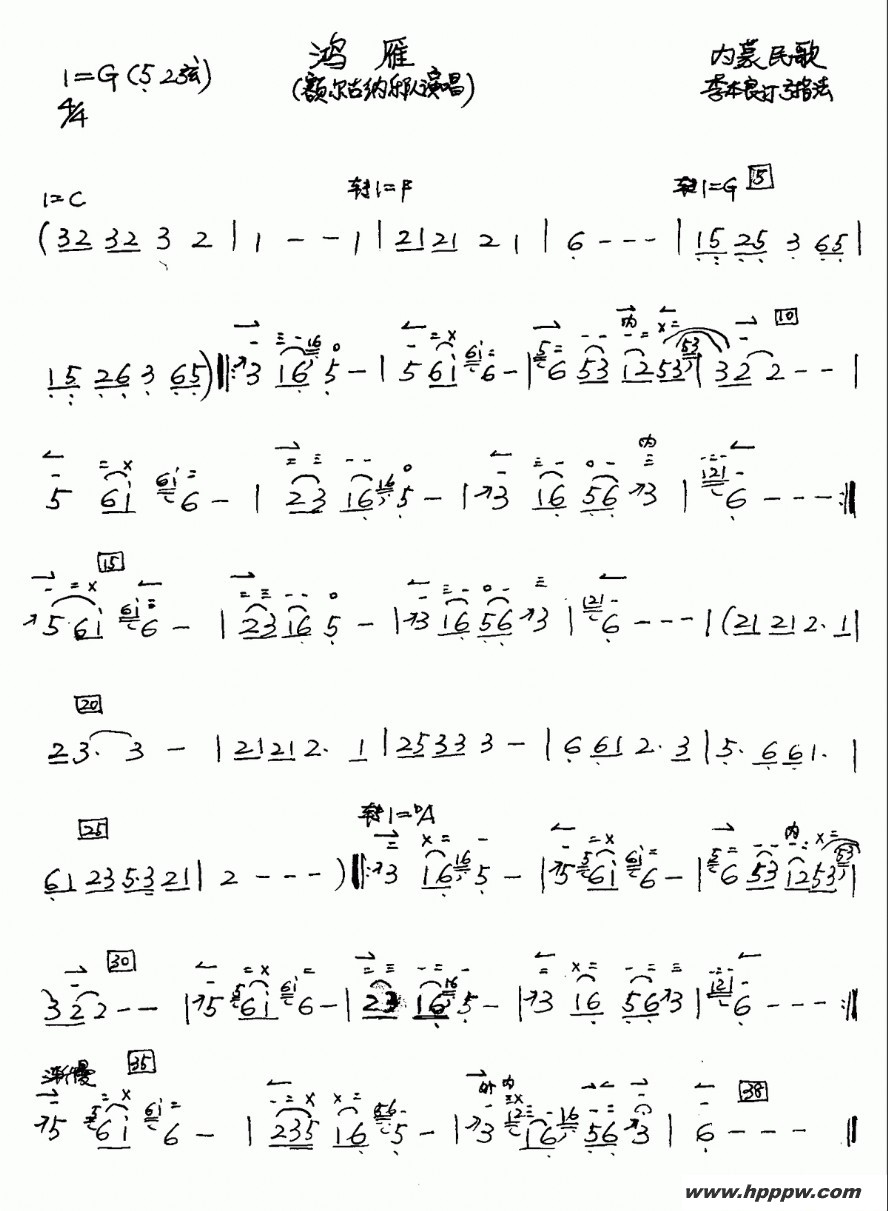 鸿雁
1=G(5 2弦) (额尔古纳乐队演唱) 内蒙民歌
4/4 李本良订弓指法
1=C 转1=F 转1=G 5
(32 32 3 2 | 1 - - 1 | 21 21 2 1 | 6 - - - | 15 25 3 65 |
10
15 26 3 65) |: 3 16 16 5 - | 5 61 61 6 - | 5 6 53 1253 53 | 32 2 - - |
5 61 61 6 - | 23 16 16 5 - | 3 16 56 3 | 121 6 - - - :|
15
5 61 61 6 - | 23 16 5 - | 3 16 56 3 | 121 6 - - - | (21 21 2. 1 |
20
23. 3 - | 21 21 2. 1 | 25 33 3 - | 6 61 2. 3 | 5. 6 61. |
25 转1=bA
61 23 5.3 21 | 2 - - - ) |: 3 16 16 5 - | 5 5 61 61 6 - | 5 6 53 1253 53 |
30
32 2 - - | 5 5 61 61 6 - | 23 16 16 5 - | 3 16 56 3 | 121 6 - - - :|
渐慢 35 外 内 38
5 5 61 61 6 - | 235 16 56 5 - | 3 12 16 16 56 3 | 6 - - - ‖
www.hpppw.com